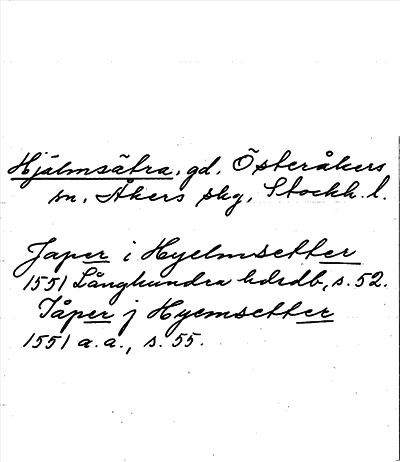 Hjälmsätra, gd, Österåkers
sn, Åkers skg, Stockh. l.
Japer i Hyelmsetter
1551 Långhundra hdrdb, s. 52.
Jåper j Hyemsetter
1551 a. a., s. 55.